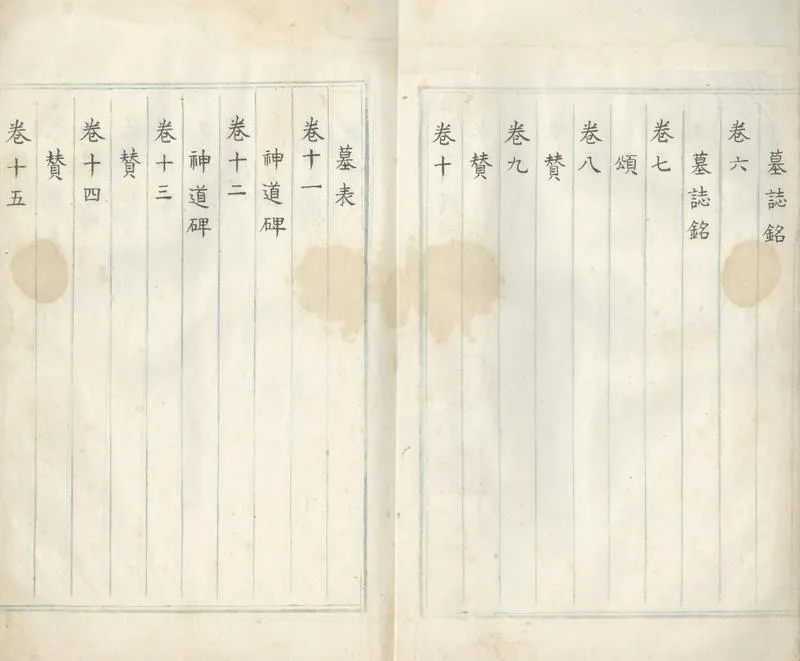 墓誌銘
卷六
墓誌銘
卷七
頌
卷八
賛
卷九
賛
卷十
墓表
卷十一
神道碑
卷十二
神道碑
卷十三
賛
卷十四
賛
卷十五